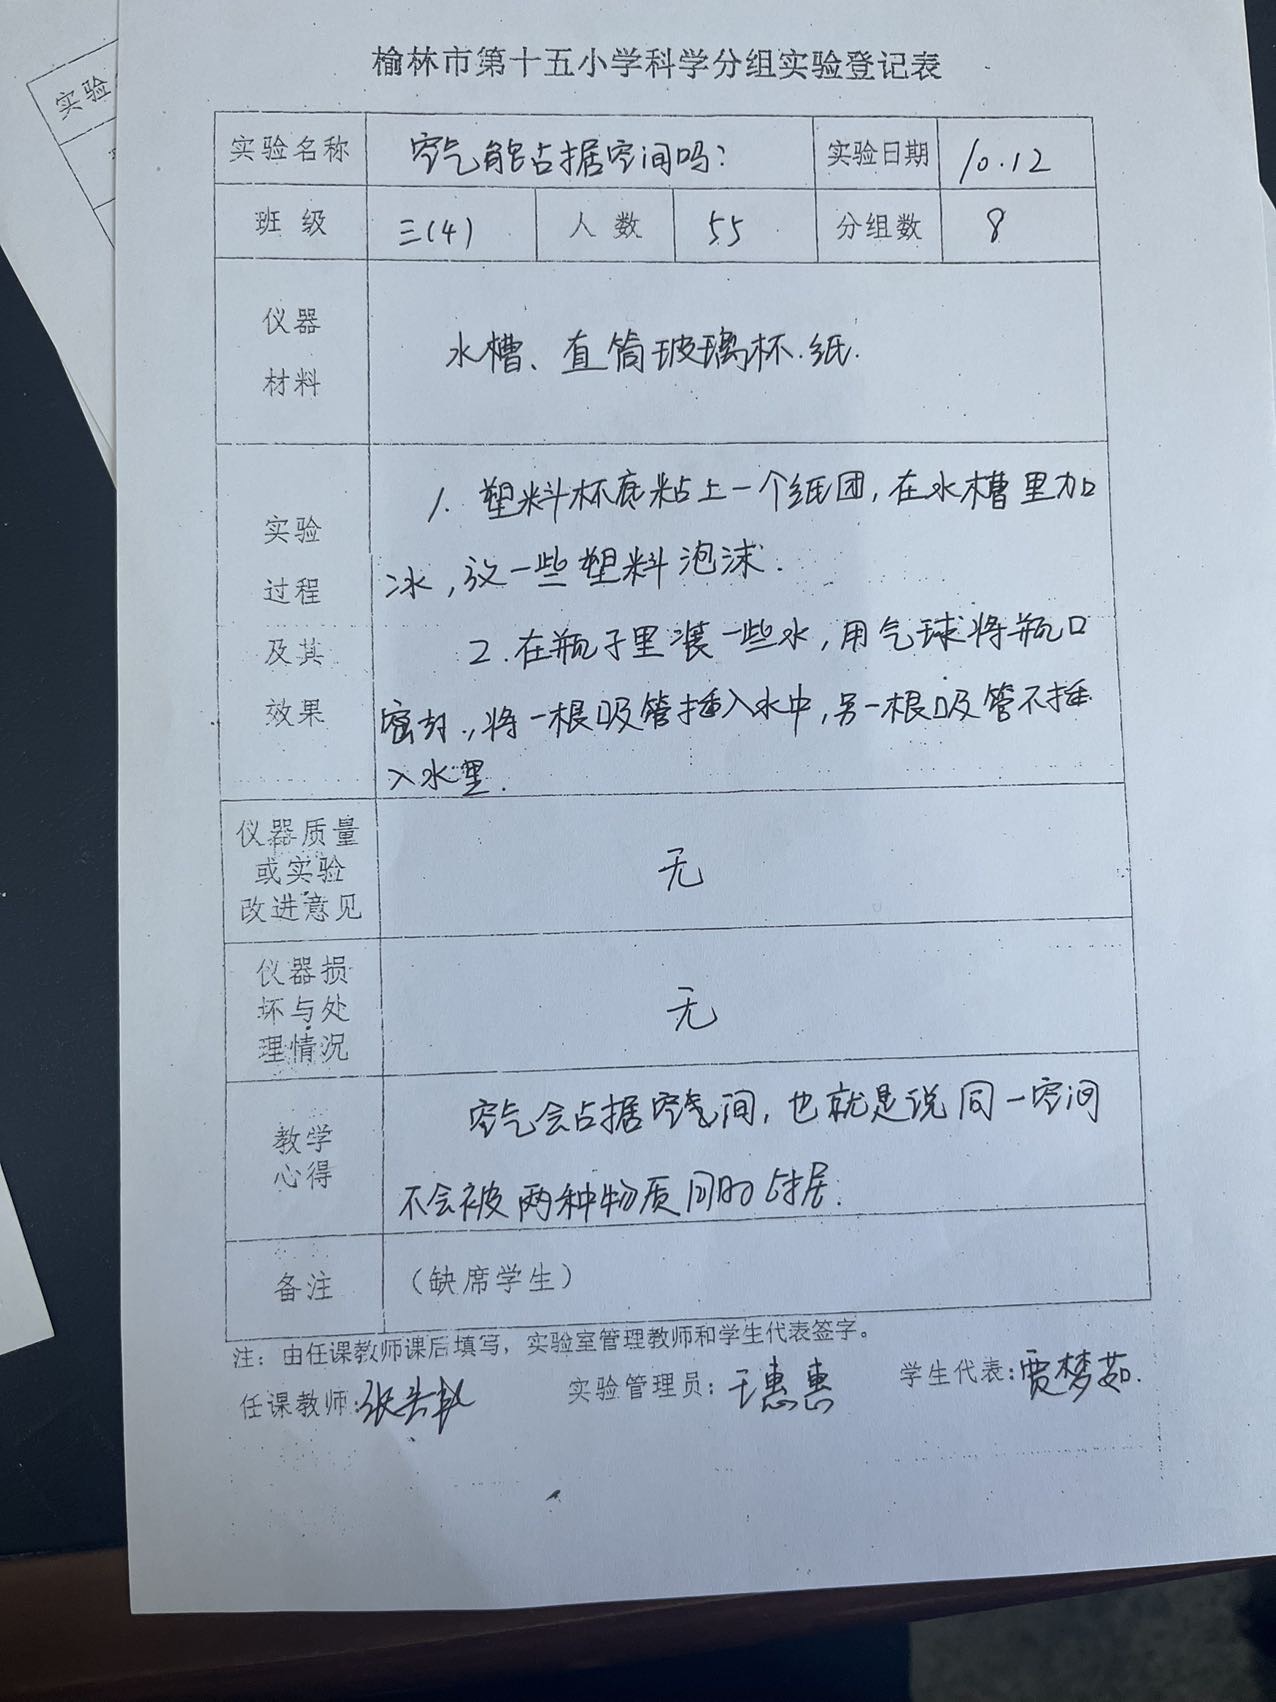 实验
榆林市第十五小学科学分组实验登记表
实验名称 空气能占据空间吗? 实验日期 10.12
班 级 三(4) 人 数 55 分组数 8
仪器
材料
水槽、直筒玻璃杯.纸.
实验
过程
及其
效果
1. 塑料杯底粘上一个纸团,在水槽里加
冰,放一些塑料泡沫.
2.在瓶子里装一些水,用气球将瓶口
密封.,将一根吸管插入水中,另一根吸管不插
入水里.
仪器质量
或实验
改进意见
无
仪器损
坏与处
理情况
无
教学
心得
空气会占据空气间,也就是说同一空间
不会被两种物质同时占居.
备注 (缺席学生)
注:由任课教师课后填写,实验室管理教师和学生代表签字。
任课教师: 实验管理员:王惠惠 学生代表:贾梦茹.